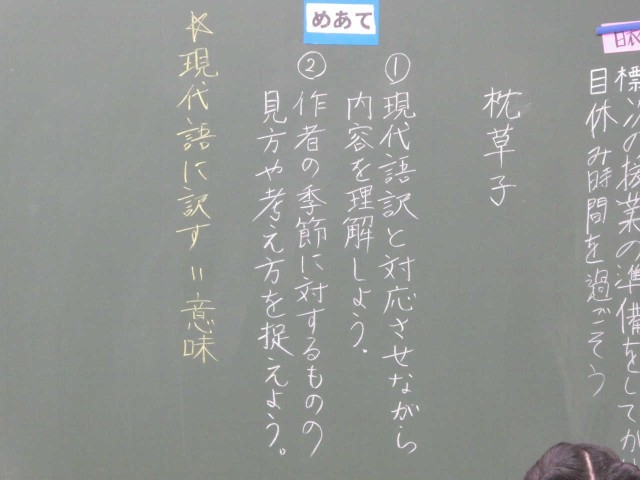 標次の授業の準備をしてか
目休み時間を過ごそう
枕草子
めあて
①現代語訳と対応させながら
内容を理解しよう。
②作者の季節に対するものの
見方や考え方を捉えよう。
☆現代語に訳す＝意味